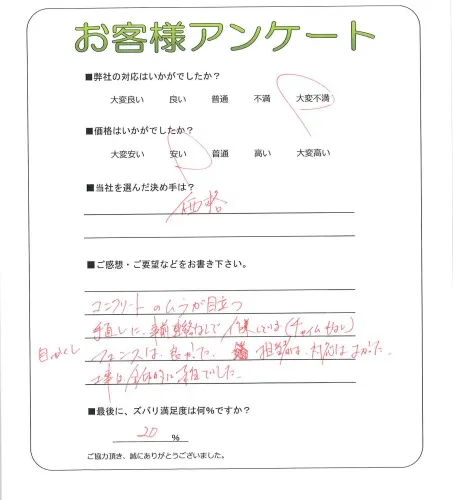 お客様アンケート
■弊社の対応はいかがでしたか?
大変良い 良い 普通 不満 大変不満
■価格はいかがでしたか?
大変安い 安い 普通 高い 大変高い
■当社を選んだ決め手は?
価格
■ご感想・ご要望などをお書き下さい。
コンクリートのムラが目立つ
手直しに、事前連絡なしで 作業している(チャイムもなし)
目かくし フェンスは、良かった。 担当者は、対応はよかった。
工事は全体的に雑でした。
■最後に、ズバリ満足度は何%ですか?
20 %
ご協力頂き、誠にありがとうございました。